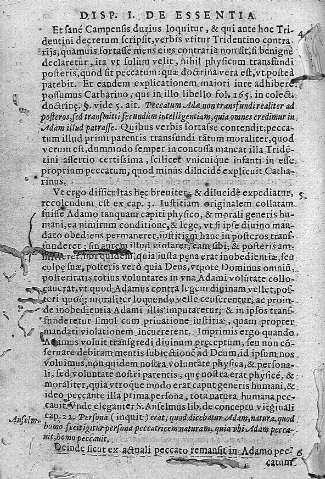 DISP. I. DE ESSENTIA
Et sanè Campensis durius loquitur, & qui ante hoc Tri-
dentini decretum scripsit, verbis vtitur Tridentino contra-
rijs, quamuis fortasse mens eius contraria non sit, si benignè
declaretur, ita vt solùm velit, nihil physicum transfundi
posteris, quod sit peccatum: quæ doctrina vera est, vt postea
patebit. Et eandem explicationem maiori iure adhibere
possumus Catharino, qui in illo libello fol. 165. in colect.
doctrinę. §. vide 5. ait. Peccatum Adæ non transfundi realiter ad
posteros, sed transmitti secundum intelligentiam, quia omnes credimur in
Adam illud patrasse. Quibus verbis fortasse contendit, pecca-
tum illud primi parentis transfundi ratum moraliter, quod
verum est, dummodo semper inconcussa maneat illa Triden-
tini assertio certissima, scilicet vnicuique infanti in esse
proprium peccatum, quod minus dilucidè explicuit Catha-
rinus.
Vt ergo difficultas hęc breuiter, & dilucidè expediatur, 5.
recolendum est ex cap. 3. Iustitiam originalem collatam
fuisse Adamo tanquam capiti physico, & morali generis hu-
mani, ea nimirum conditione, & lege, vt si ipse diuino man-
dato obediens permaneret, iustitiam hanc in posteros trans-
funderet; sin autem illud violaret, eam sibi, & posteris am-
quidem, quia iusta pœna erat inobedientiæ, seu
culpæ suæ, posteris verò quia Deus, vtpote Dominus omniū,
posteritatis totius voluntates in vna Adami voluntate collo-
cauerat, vt quod Adamus contra legem diuinam vellet, pos-
teri quoque moraliter loquendo velle censerentur, ac proin-
de inobedientia Adami illis imputaretur; & in ipsos trans-
funderetur simul cum priuatione iustitiæ, quam propter
mandati violationem incurrerent. Imprimis ergo quando
Adamus voluit transgredi diuinum præceptum, seu non cō-
seruare debitam mentis subiectionem ad Deum, id ipsum nos
voluimus, non quidem nostra voluntate physica, & persona-
li, sed voluntate nostri parentis, quæ nostra erat physicè, &
moraliter, quia vtroque modo erat caput generis humani, &
ideo peccante illa prima persona, tota natura humana pec-
cauit. Vnde eleganter S. Anselmus lib. de conceptu virginali
Anselm. cap. 23. Persona (inquit) erat, quod dicebatur Adam, natura, quod
homo: fecit igitur persona peccatricem naturam, quia vbi Adam pecca-
uit, homo peccauit.
Deinde sicut ex actuali peccato remansit in Adamo pec- 6
catum